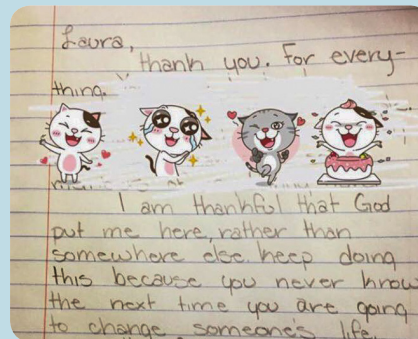 Laura,
thank you. For every-
thing.
I am thankful that God
put me here, rather than
somewhere else. keep doing
this because you never know
the next time you are going
to change someone's life.